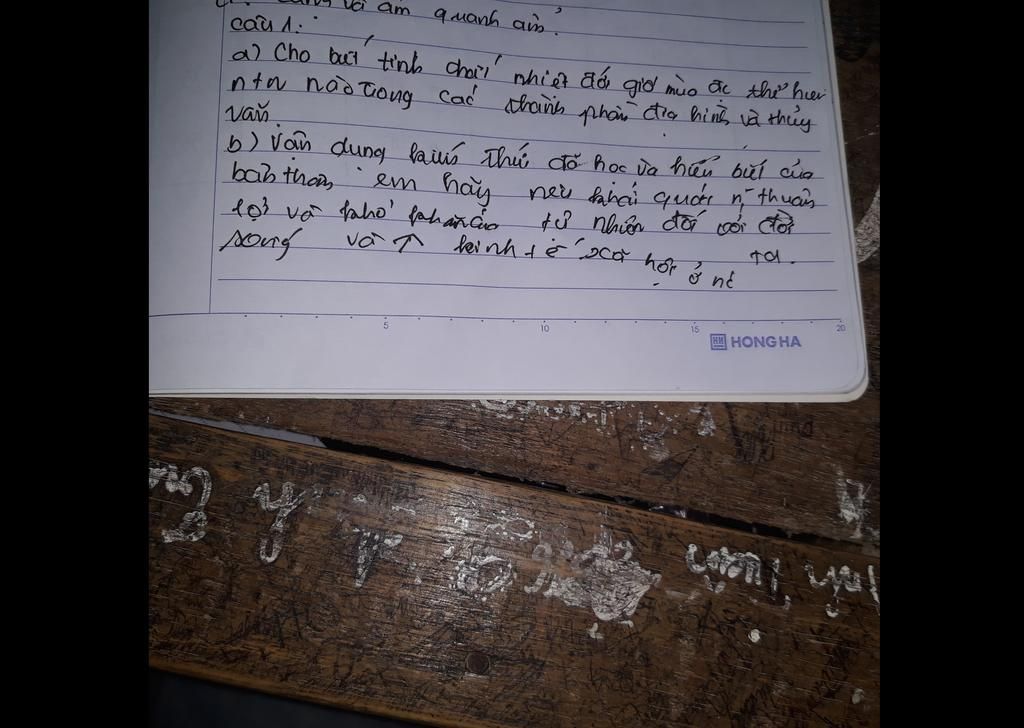 và ấm quanh ấm.
câu 1:
a) Cho biết tính chất nhiệt đới gió mùa đc thể hiện
ntn nào trong các thành phần địa hình và thủy
văn.
b) Vận dụng kiến thức đã học và hiểu biết của
bản thân em hãy nêu khái quát n~ thuận
lợi và khó khăn của tự nhiên đối với đời
sống và ↑ kinh tế xã hội ở nc ta.
5 10 15 20
HH HONG HA